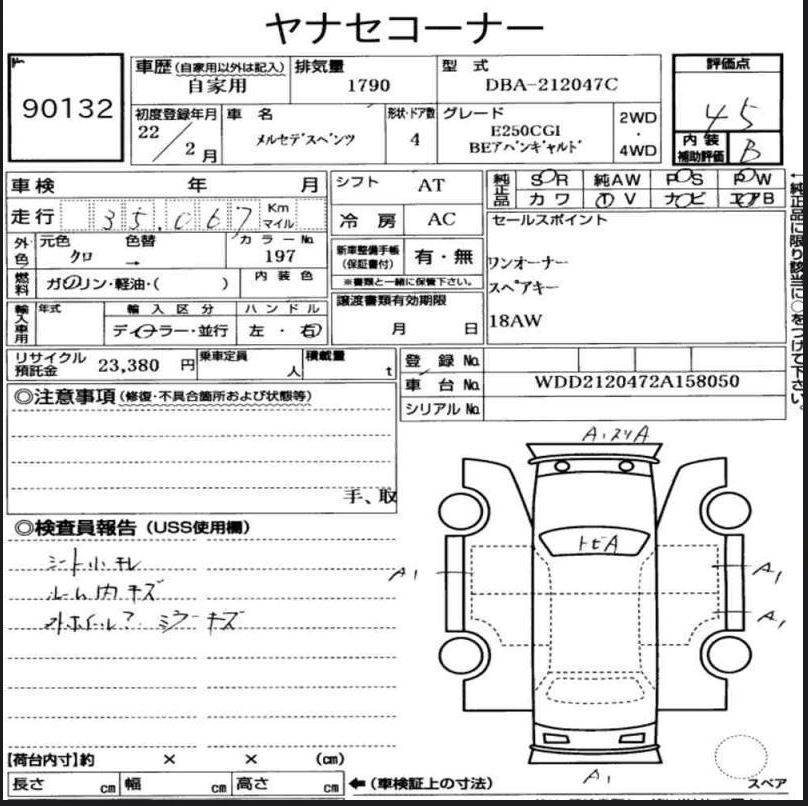 ヤナセコーナー
90132
車歴 (自家用以外は記入) 自家用
排気量 1790
型式 DBA-212047C
評価点 4.5
初度登録年月 22/2月
車名 メルセデスベンツ
形状・ドア数 4
グレード E250CGI
BEアバンギャルド
2WD
・
4WD
内装
補助評価 B
車検 年 月
シフト AT
純正品 SOR 純AW POS POW
カワ TV ナビ エアB
走行 35,067 Km
マイル
冷房 AC
セールスポイント
外色 元色 色替 カラーNo.
クロ → 197
新車整備手帳
(保証書付) 有・無
ワンオーナー
※書類と一緒に保管下さい。
スペアキー
燃料 ガソリン・軽油・( )
内装色
18AW
輸入車用 年式 輸入区分 ハンドル
ディーラー・並行 左・右
譲渡書類有効期限
月 日
←純正品に限り該当に○をつけて下さい。
リサイクル
預託金 23,380 円
乗車定員 人
積載量 t
登録No.
車台No. WDD2120472A158050
シリアルNo.
◎注意事項 (修復・不具合箇所および状態等)
手、取
◎検査員報告 (USS使用欄)
シート小スレ
ルーム内キズ
ホイール
ミラーキズ
A1
トビA
A1
A1
A1
A1
スペア
【荷台内寸】約 × × (cm)
長さ cm 幅 cm 高さ cm
←(車検証上の寸法)